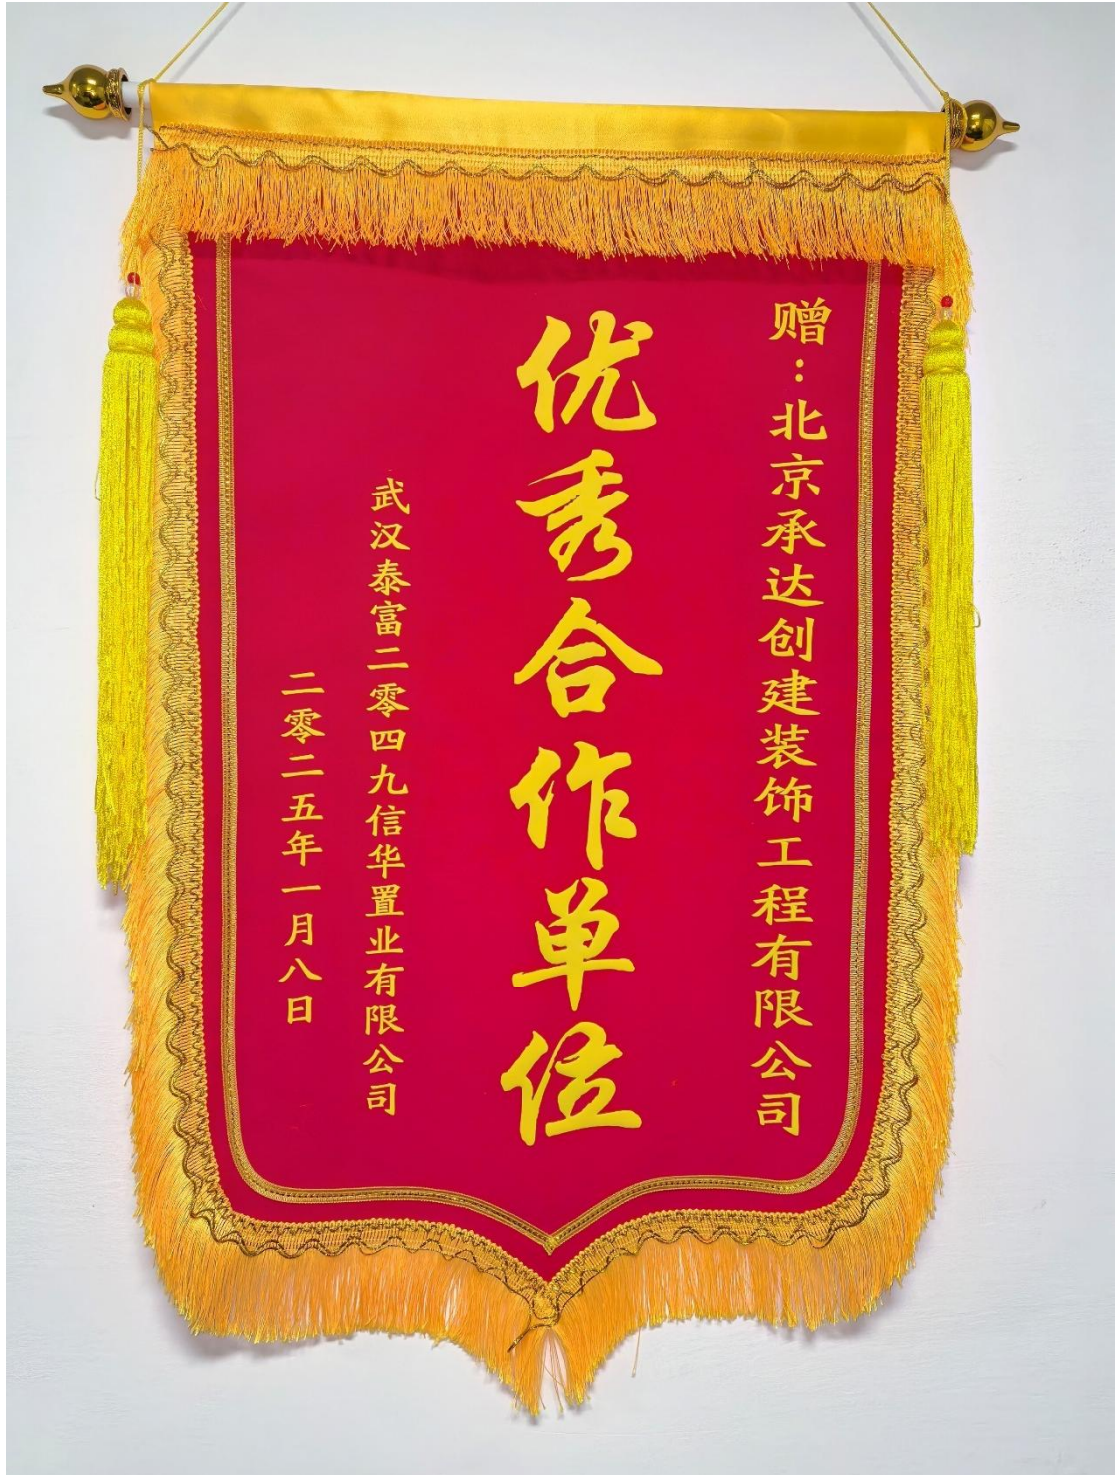 赠：北京承达创建装饰工程有限公司
优秀合作单位
武汉泰富二零四九信华置业有限公司
二零二五年一月八日